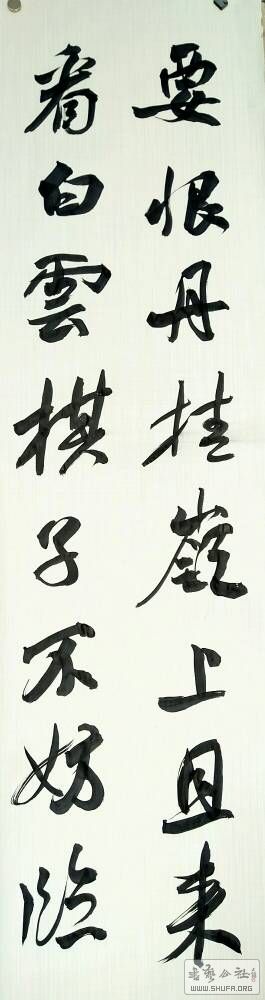 要恨丹桂嶺上且来
看白雲棋子不妨臨
書藝公社
WWW.SHUFA.ORG